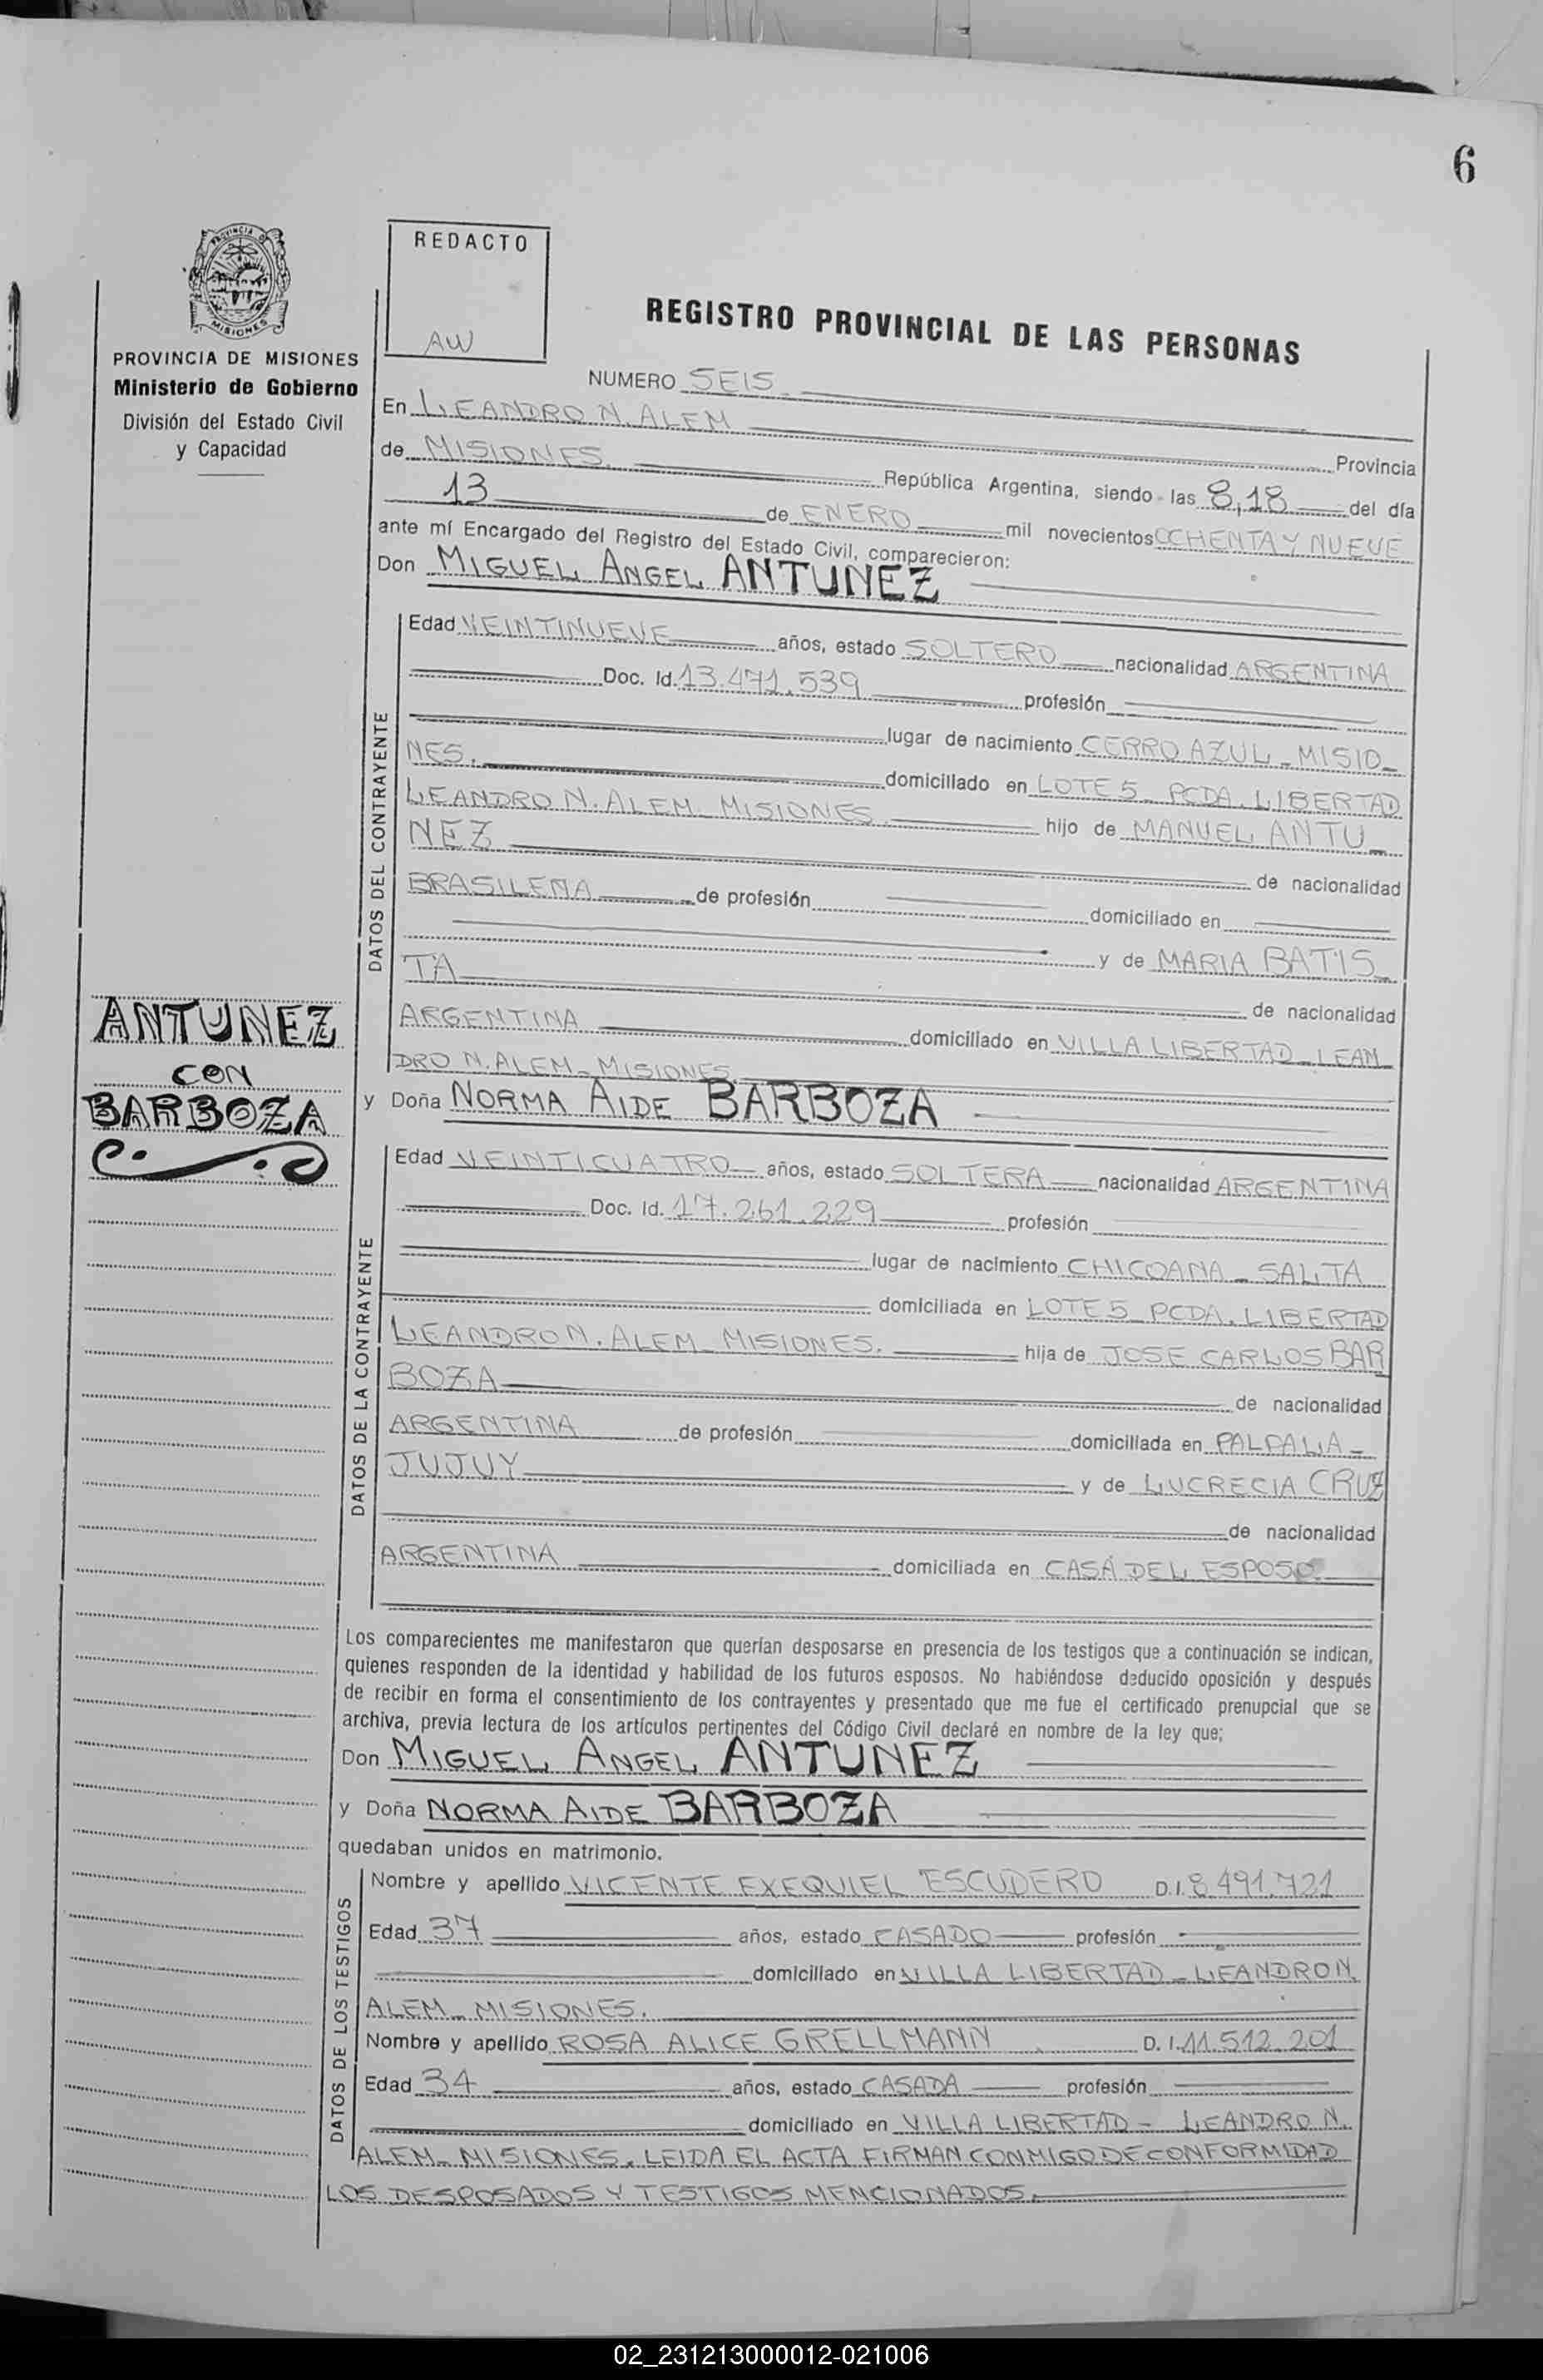 6
PROVINCIA DE MISIONES
PROVINCIA DE MISIONES
Ministerio de Gobierno
División del Estado Civil
y Capacidad
REDACTO
AW
REGISTRO PROVINCIAL DE LAS PERSONAS
NUMERO SEIS
En LEANDRO N. ALEM
Provincia
de MISIONES. República Argentina, siendo las 8,18 del día
13 de ENERO mil novecientos OCHENTA Y NUEVE
ante mí Encargado del Registro del Estado Civil, comparecieron:
Don MIGUEL ANGEL ANTUNEZ
DATOS DEL CONTRAYENTE
Edad VEINTINUEVE años, estado SOLTERO nacionalidad ARGENTINA
Doc. Id. 13.471.539 profesión
lugar de nacimiento CERRO AZUL - MISIO-
NES. domiciliado en LOTE 5 - PCDA. LIBERTAD
LEANDRO N. ALEM - MISIONES. hijo de MANUEL ANTU-
NEZ de nacionalidad
BRASILEÑA de profesión domiciliado en
y de MARIA BATIS-
TA de nacionalidad
ARGENTINA domiciliado en VILLA LIBERTAD - LEAN-
DRO N. ALEM - MISIONES.
ANTUNEZ
CON
BARBOZA
y Doña NORMA AIDE BARBOZA
DATOS DE LA CONTRAYENTE
Edad VEINTICUATRO años, estado SOLTERA nacionalidad ARGENTINA
Doc. Id. 17.261.229 profesión
lugar de nacimiento CHICOANA - SALTA
domiciliada en LOTE 5 - PCDA. LIBERTAD
LEANDRO N. ALEM - MISIONES. hija de JOSE CARLOS BAR
BOZA de nacionalidad
ARGENTINA de profesión domiciliada en PALPALA -
JUJUY y de LUCRECIA CRUZ
de nacionalidad
ARGENTINA domiciliada en CASA DEL ESPOSO
Los comparecientes me manifestaron que querían desposarse en presencia de los testigos que a continuación se indican,
quienes responden de la identidad y habilidad de los futuros esposos. No habiéndose deducido oposición y después
de recibir en forma el consentimiento de los contrayentes y presentado que me fue el certificado prenupcial que se
archiva, previa lectura de los artículos pertinentes del Código Civil declaré en nombre de la ley que;
Don MIGUEL ANGEL ANTUNEZ
y Doña NORMA AIDE BARBOZA
quedaban unidos en matrimonio.
DATOS DE LOS TESTIGOS
Nombre y apellido VICENTE EXEQUIEL ESCUDERO D.I. 8.491.721
Edad 37 años, estado CASADO profesión
domiciliado en VILLA LIBERTAD - LEANDRO N.
ALEM - MISIONES.
Nombre y apellido ROSA ALICE GRELLMANN D. I. 11.512.201
Edad 34 años, estado CASADA profesión
domiciliado en VILLA LIBERTAD - LEANDRO N.
ALEM - MISIONES. LEIDA EL ACTA FIRMAN CONMIGO DE CONFORMIDAD
LOS DESPOSADOS Y TESTIGOS MENCIONADOS.
02_231213000012-021006